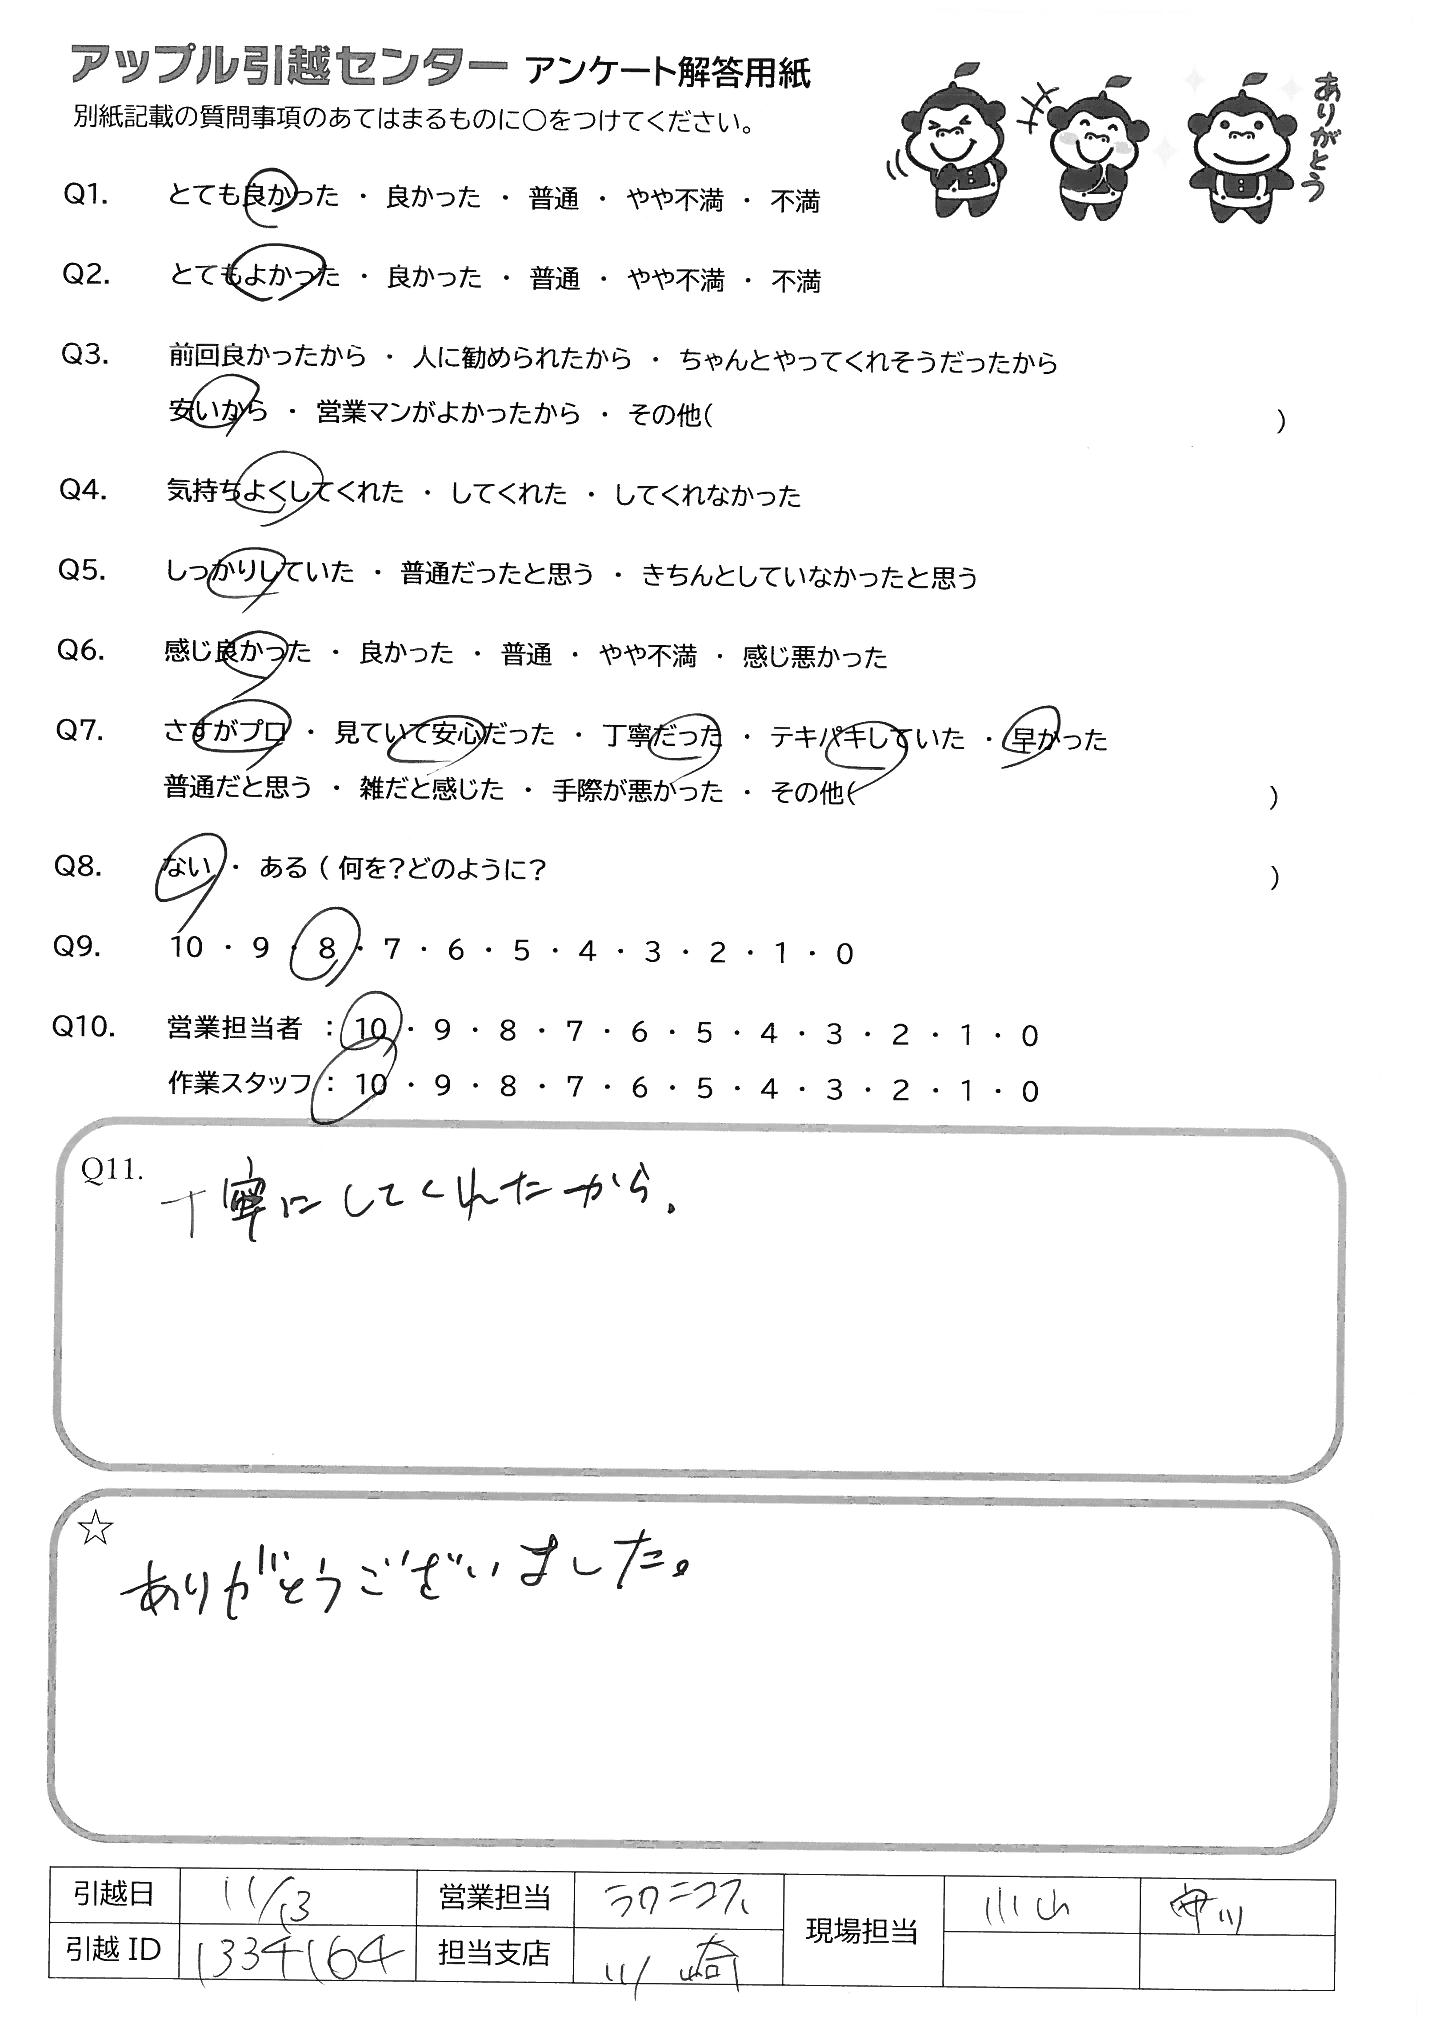 アップル引越センター アンケート解答用紙
別紙記載の質問事項のあてはまるものに○をつけてください。
ありがとう
Q1. とても良かった ・ 良かった ・ 普通 ・ やや不満 ・ 不満
Q2. とてもよかった ・ 良かった ・ 普通 ・ やや不満 ・ 不満
Q3. 前回良かったから ・ 人に勧められたから ・ ちゃんとやってくれそうだったから
安いから ・ 営業マンがよかったから ・ その他( )
Q4. 気持ちよくしてくれた ・ してくれた ・ してくれなかった
Q5. しっかりしていた ・ 普通だったと思う ・ きちんとしていなかったと思う
Q6. 感じ良かった ・ 良かった ・ 普通 ・ やや不満 ・ 感じ悪かった
Q7. さすがプロ ・ 見ていて安心だった ・ 丁寧だった ・ テキパキしていた ・ 早かった
普通だと思う ・ 雑だと感じた ・ 手際が悪かった ・ その他( )
Q8. ない ・ ある ( 何を？どのように？ )
Q9. 10 ・ 9 ・ 8 ・ 7 ・ 6 ・ 5 ・ 4 ・ 3 ・ 2 ・ 1 ・ 0
Q10. 営業担当者 : 10 ・ 9 ・ 8 ・ 7 ・ 6 ・ 5 ・ 4 ・ 3 ・ 2 ・ 1 ・ 0
作業スタッフ : 10 ・ 9 ・ 8 ・ 7 ・ 6 ・ 5 ・ 4 ・ 3 ・ 2 ・ 1 ・ 0
Q11. 丁寧にしてくれたから.
☆
ありがとうございました。
引越日 11/13 営業担当 現場担当 小山
引越 ID 1334164 担当支店 川崎